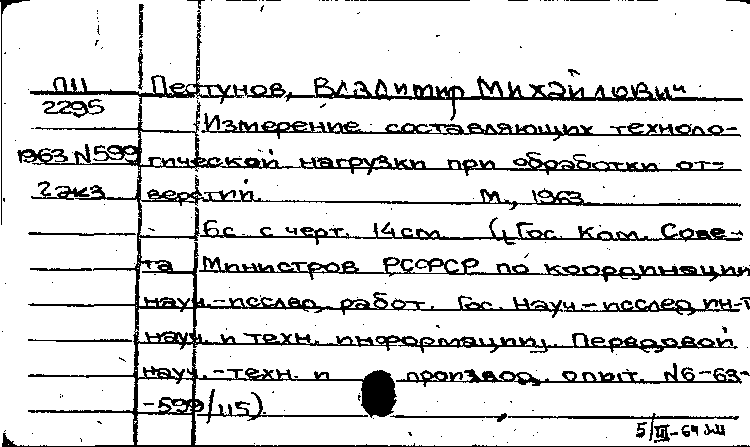 П11 Пестунов, Владимир Михайлович
2295
Измерение составляющих техноло-
1963 N599 гической нагрузки при обработки от-
2 экз верстий. М., 1963
6с. с черт. 14см (Гос. Ком. Сове-
та Министров РСФСР по координации
науч.-исслед. работ. Гос. Науч-исслед. ин-т
науч. и техн. информации. Передовой
науч.-техн. и производ. опыт. N6-63-
-599/115)
5/III-64